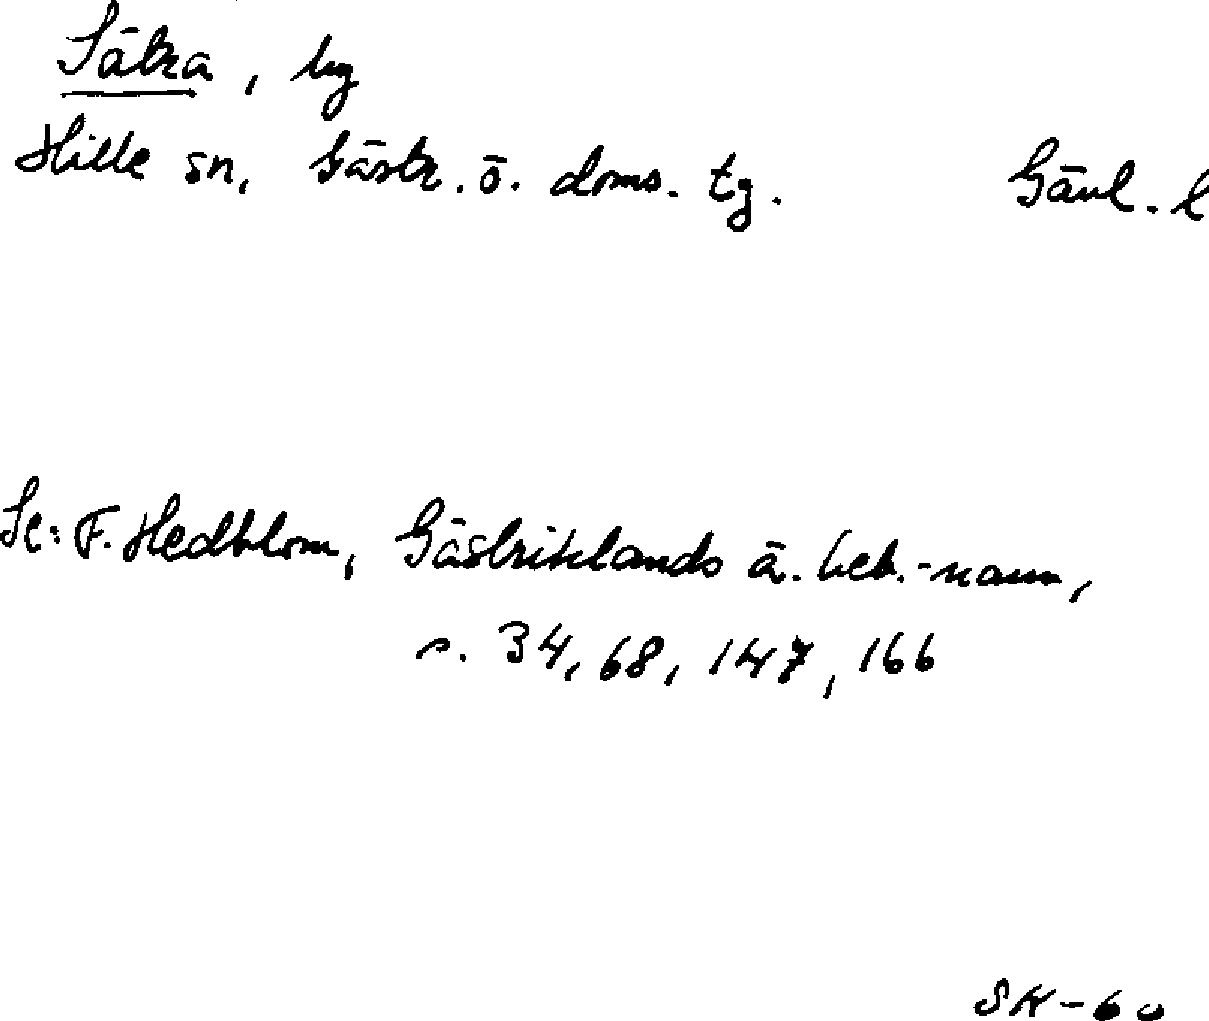 Sätra, by
Hille sn, Gästr. ö. doms. tg. Gävl. l
Se: F. Hedblom, Gästriklands ä. beb.-namn,
s. 34, 68, 147, 166
SK-60